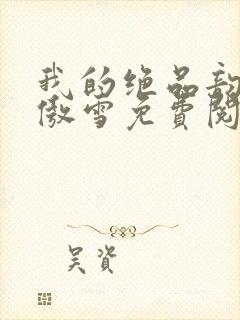 我的绝品
傲雪免费阅
吴资